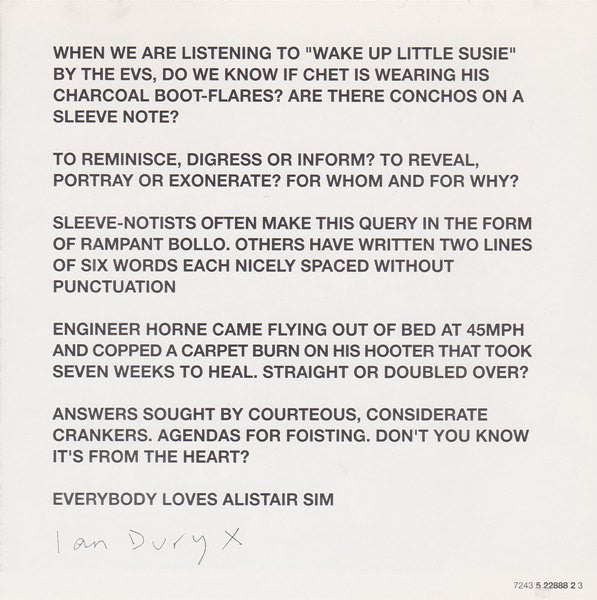 WHEN WE ARE LISTENING TO "WAKE UP LITTLE SUSIE"
BY THE EVS, DO WE KNOW IF CHET IS WEARING HIS
CHARCOAL BOOT-FLARES? ARE THERE CONCHOS ON A
SLEEVE NOTE?

TO REMINISCE, DIGRESS OR INFORM? TO REVEAL,
PORTRAY OR EXONERATE? FOR WHOM AND FOR WHY?

SLEEVE-NOTISTS OFTEN MAKE THIS QUERY IN THE FORM
OF RAMPANT BOLLO. OTHERS HAVE WRITTEN TWO LINES
OF SIX WORDS EACH NICELY SPACED WITHOUT
PUNCTUATION

ENGINEER HORNE CAME FLYING OUT OF BED AT 45MPH
AND COPPED A CARPET BURN ON HIS HOOTER THAT TOOK
SEVEN WEEKS TO HEAL. STRAIGHT OR DOUBLED OVER?

ANSWERS SOUGHT BY COURTEOUS, CONSIDERATE
CRANKERS. AGENDAS FOR FOISTING. DON'T YOU KNOW
IT'S FROM THE HEART?

EVERYBODY LOVES ALISTAIR SIM

Ian Dury X

7243 5 22888 2 3